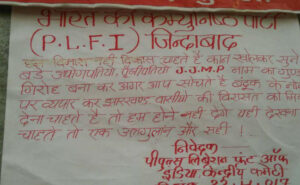 भारत का कम्युनिष्ट पार्टी
(P.L.F.I) जिन्दाबाद
हम विनाश नहीं विकास चाहते है कान खोलकर सुने
बड़े उद्योगपतियो पूँजीपतियो J.J.M.P नाम का गुण्डा
गिरोह बना कर अगर आप सोचते है बंदूक के नोक
पर व्यपार कर झारखण्ड वासीयो की विरासत को मिटा
देना चाहते है तो हम होने नही देगे यही देखना
चाहते तो एक उलगुलान और सही !
निवेदक
पीपुल्स लिबरेशन फ्रंट ऑफ
इंडिया केन्द्रीय कमेटी